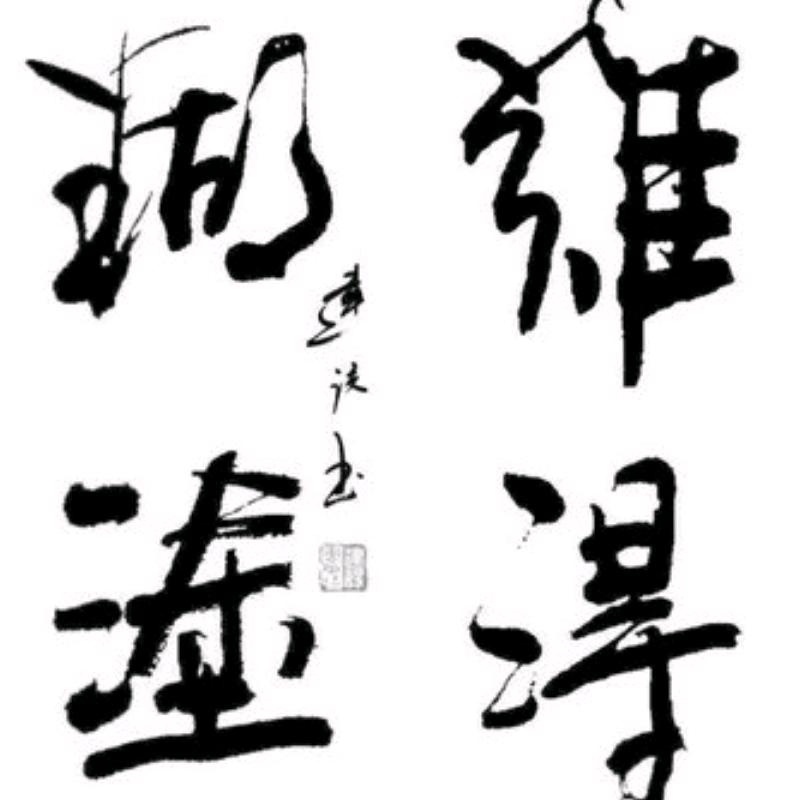 難得
糊塗